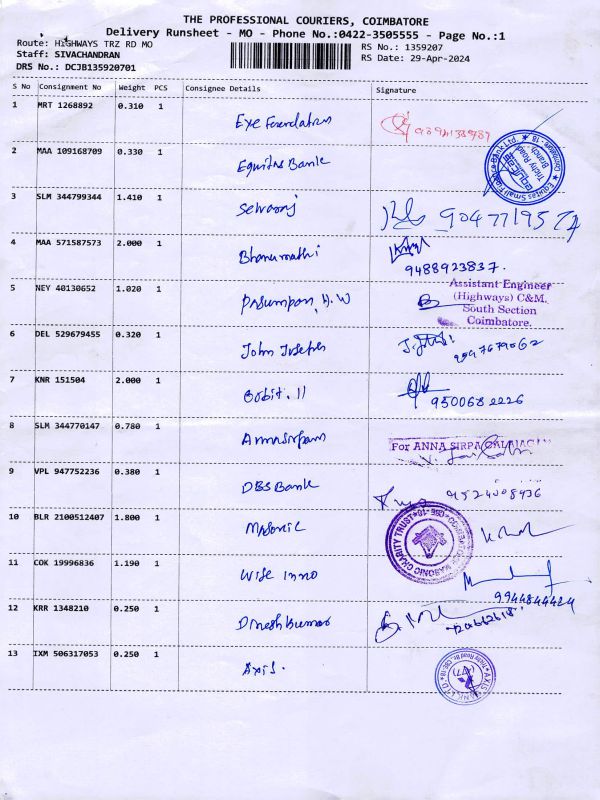 THE PROFESSIONAL COURIERS, COIMBATORE
Delivery Runsheet - MO - Phone No.:0422-3505555 - Page No.:1
Route: HIGHWAYS TRZ RD MO
RS No.: 1359207
Staff: SIVACHANDRAN
RS Date: 29-Apr-2024
DRS No.: DCJB135920701
S No Consignment No Weight PCS Consignee Details Signature
1 MRT 1268892 0.310 1
Eye Foundation
2 MAA 109168709 0.330 1
Equitas Bank
Equitas Small Finance Bank Ltd. Coimbatore - 18
Trichy Road Branch
3 SLM 344799344 1.410 1
Selvaraj
4 MAA 571587573 2.000 1
Bhanumathi
9488923837.
5 NEY 40130652 1.020 1
Assistant Engineer
(Highways) C&M.
South Section
Coimbatore.
6 DEL 529679455 0.320 1
John Joseph
7 KNR 151504 2.000 1
Gobit. 11
9500682226
8 SLM 344770147 0.780 1
For ANNA
9 VPL 947752236 0.380 1
DBS Bank
10 BLR 2100512407 1.800 1
Masonic
MASONIC CHARITY TRUST
11 COK 19996836 1.190 1
Wise inno
9944844424
12 KRR 1348210 0.250 1
Dinesh Kumar
13 IXM 506317053 0.250 1
Axis.
AXIS BANK LTD